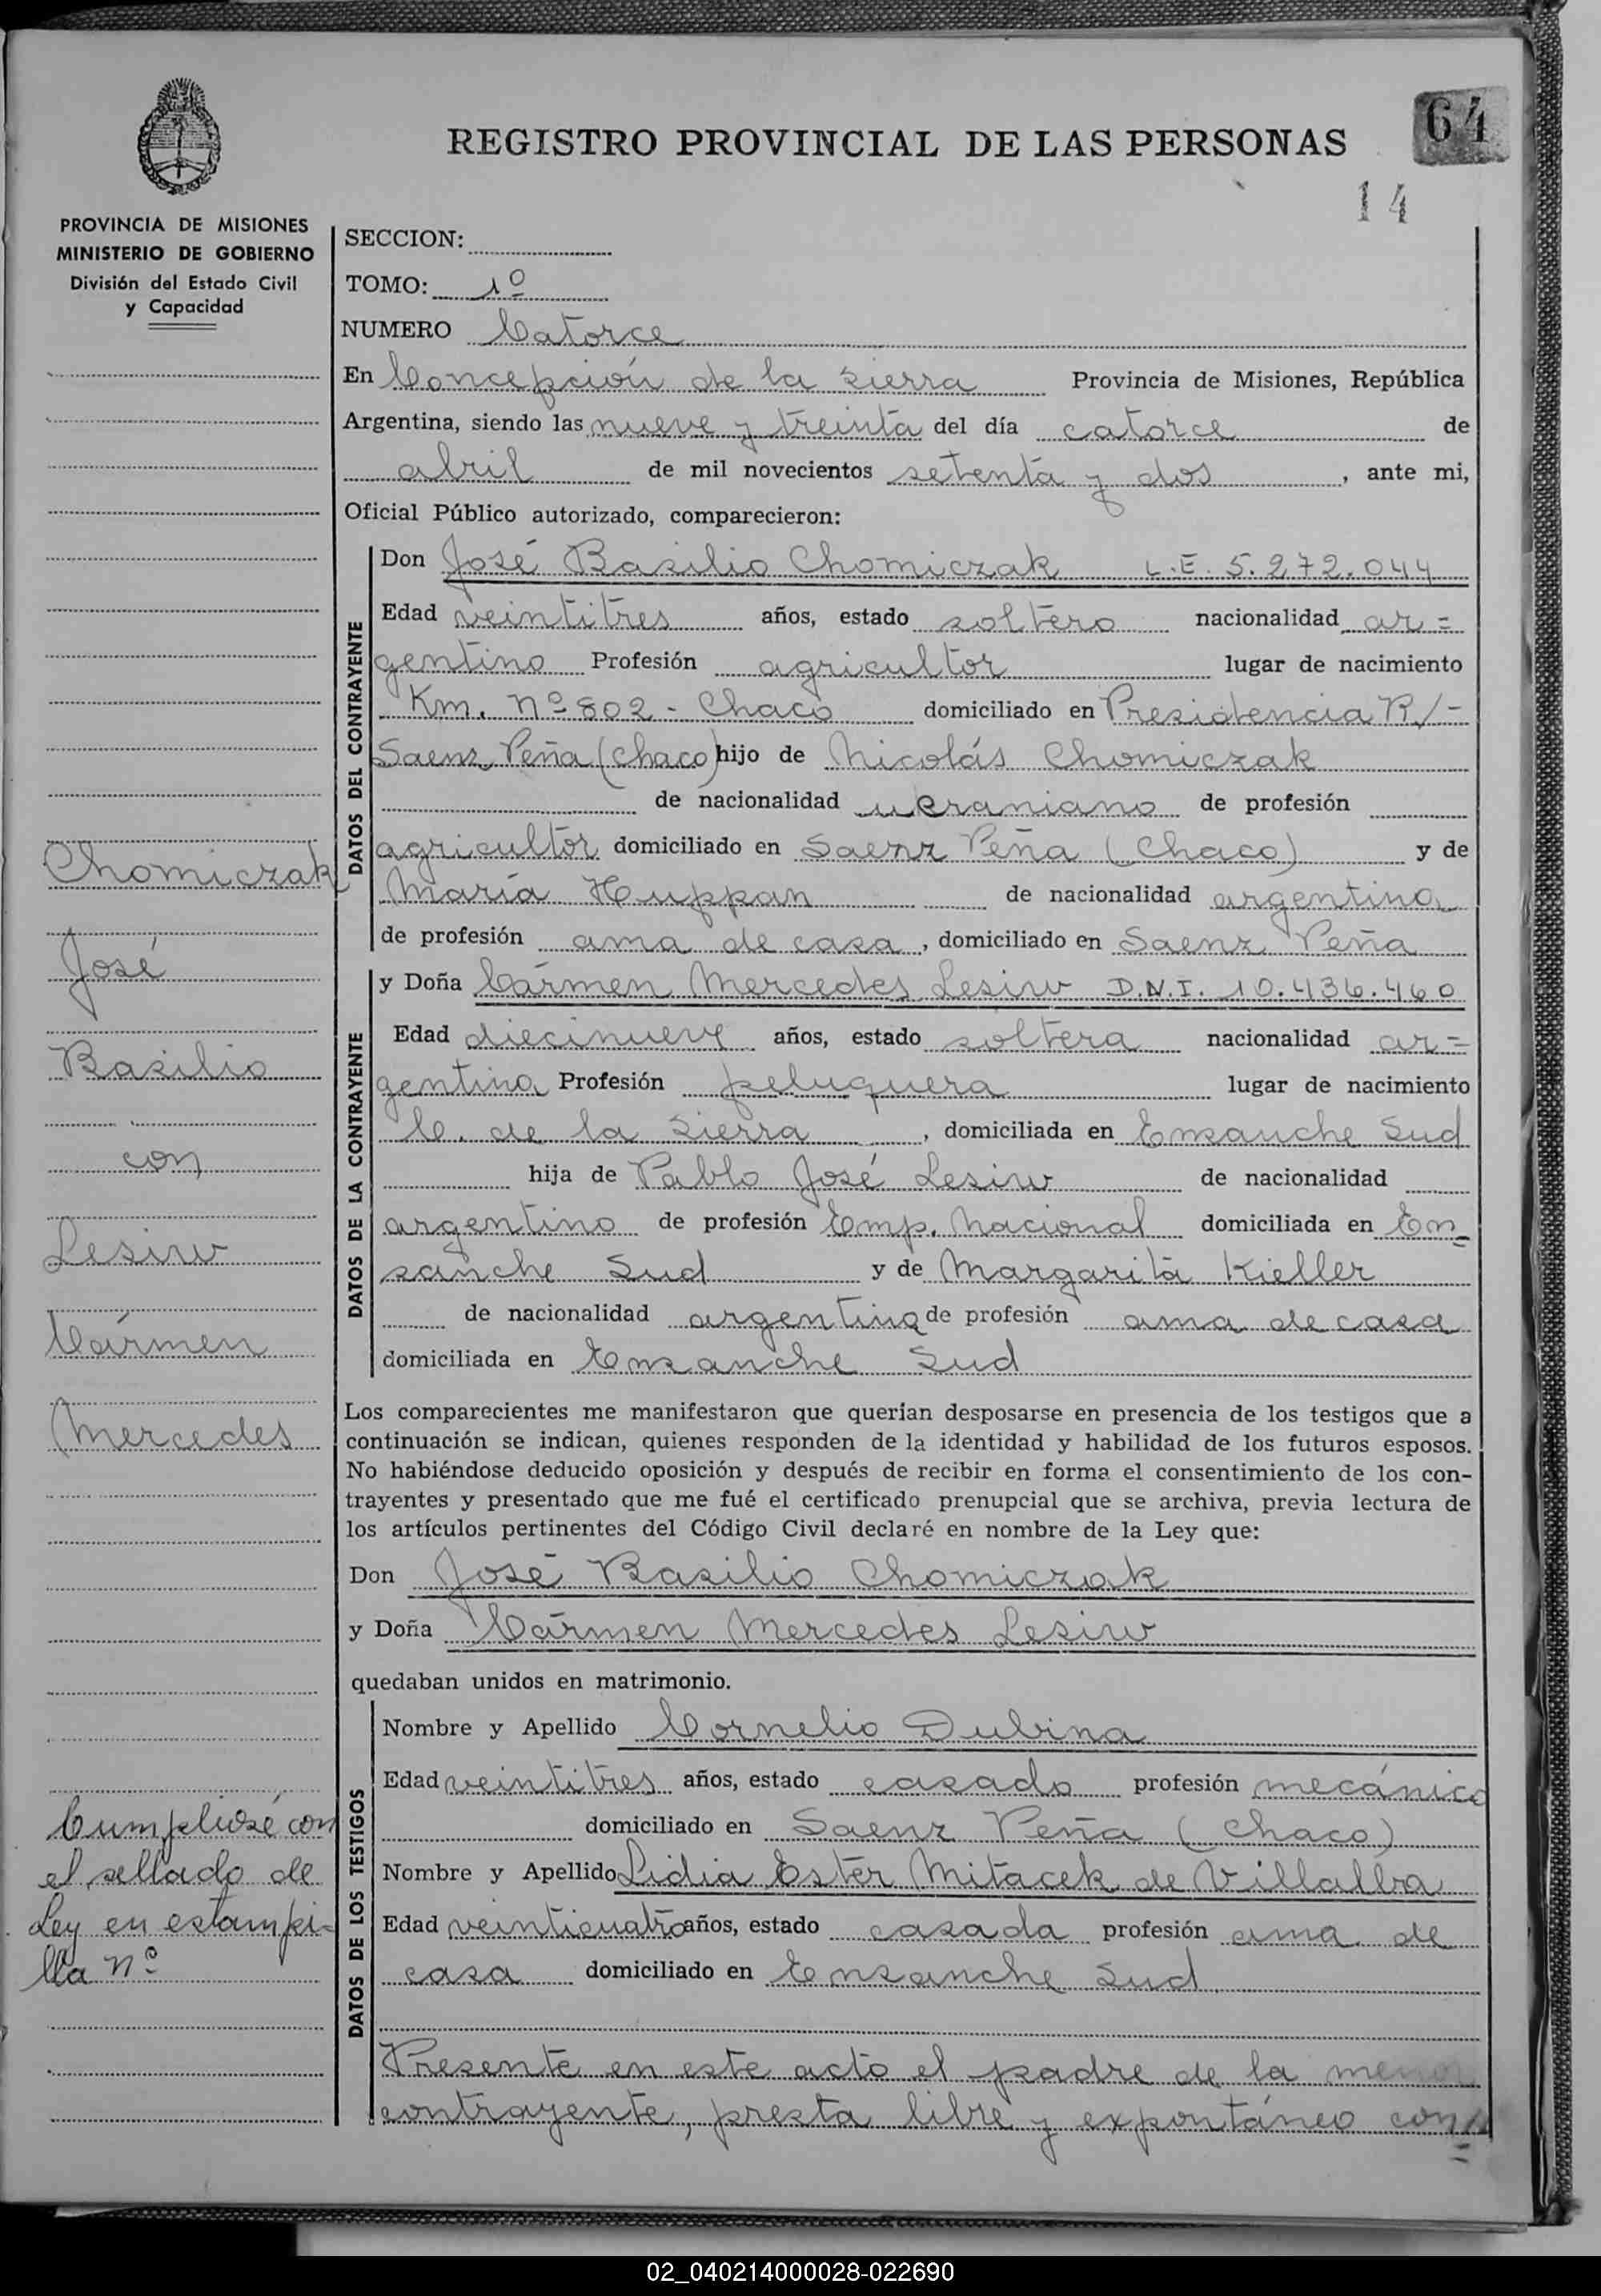 64
REGISTRO PROVINCIAL DE LAS PERSONAS
14
PROVINCIA DE MISIONES
MINISTERIO DE GOBIERNO
División del Estado Civil
y Capacidad
SECCION:
TOMO: 1º
NUMERO Catorce
En Concepción de la Sierra Provincia de Misiones, República
Argentina, siendo las nueve y treinta del día catorce de
abril de mil novecientos setenta y dos, ante mi,
Oficial Público autorizado, comparecieron:
DATOS DEL CONTRAYENTE
Don José Basilio Chomiczak L.E. 5.272.044
Edad veintitres años, estado soltero nacionalidad ar=
gentino Profesión agricultor lugar de nacimiento
Km. Nº 802 - Chaco domiciliado en Presidencia R/-
Saenz Peña (Chaco) hijo de Nicolás Chomiczak
de nacionalidad ukraniano de profesión
agricultor domiciliado en Saenz Peña (Chaco) y de
María Huppan de nacionalidad argentina
de profesión ama de casa, domiciliado en Saenz Peña
DATOS DE LA CONTRAYENTE
y Doña Cármen Mercedes Lesiw D.N.I. 10.436.460
Edad diecinueve años, estado soltera nacionalidad ar=
gentina Profesión peluquera lugar de nacimiento
C. de la Sierra, domiciliada en Ensanche Sud
hija de Pablo José Lesiw de nacionalidad
argentino de profesión Emp. Nacional domiciliada en En=
sanche Sud y de Margarita Kieller
de nacionalidad argentina de profesión ama de casa
domiciliada en Ensanche Sud
Los comparecientes me manifestaron que querían desposarse en presencia de los testigos que a
continuación se indican, quienes responden de la identidad y habilidad de los futuros esposos.
No habiéndose deducido oposición y después de recibir en forma el consentimiento de los con-
trayentes y presentado que me fué el certificado prenupcial que se archiva, previa lectura de
los artículos pertinentes del Código Civil declaré en nombre de la Ley que:
Don José Basilio Chomiczak
y Doña Cármen Mercedes Lesiw
quedaban unidos en matrimonio.
DATOS DE LOS TESTIGOS
Nombre y Apellido Cornelio Dubina
Edad veintitres años, estado casado profesión mecánico
domiciliado en Saenz Peña (Chaco)
Nombre y Apellido Lidia Ester Mitacek de Villalba
Edad veinticuatro años, estado casada profesión ama de
casa domiciliado en Ensanche Sud
Presente en este acto el padre de la menor
contrayente, presta libre y expontáneo con=
Chomiczak
José
Basilio
con
Lesiw
Cármen
Mercedes
Cumpliose con
el sellado de
Ley en estampi-
lla nº
02_040214000028-022690